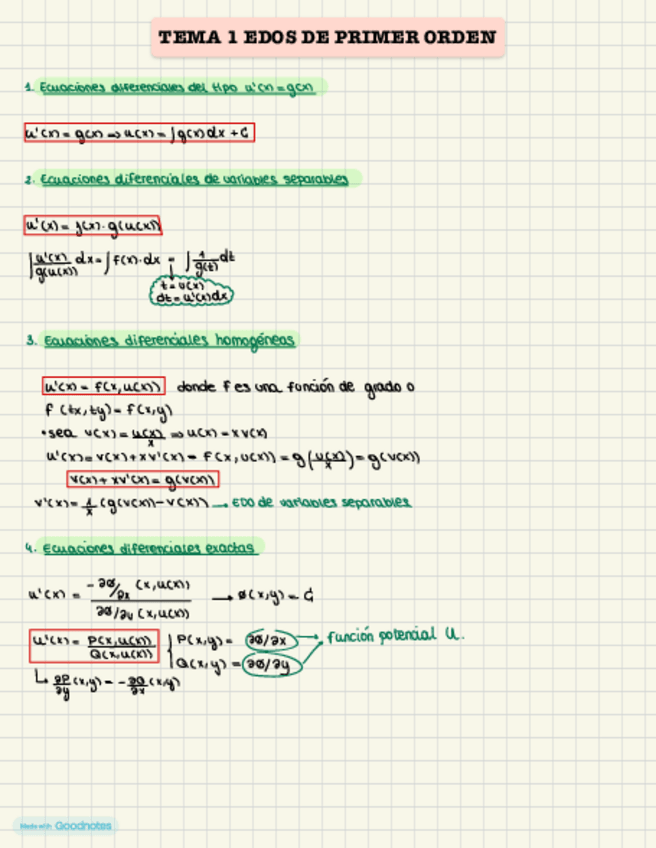 TEMA 1 EDOS DE PRIMER ORDEN
1. Ecuaciones diferenciales del tipo u'(x) = g(x)
u'(x) = g(x) ⇒ u(x) = ∫g(x)dx + C
2. Ecuaciones diferenciales de variables separables
u'(x) = f(x)·g(u(x))
∫ u'(x)/g(u(x)) dx = ∫ f(x)·dx = ∫ 1/g(t) dt
t = u(x)
dt = u'(x)dx
3. Ecuaciones diferenciales homogéneas
u'(x) = f(x,u(x)) donde f es una función de grado 0
f (tx, ty) = f(x,y)
• sea v(x) = u(x)/x ⇒ u(x) = x v(x)
u'(x) = v(x) + xv'(x) = f(x, u(x)) = g(u(x)/x) = g(v(x))
v(x) + xv'(x) = g(v(x))
v'(x) = 1/x (g(v(x)) - v(x)) → EDO de variables separables
4. Ecuaciones diferenciales exactas
u'(x) = -∂ø/∂x (x,u(x)) / ∂ø/∂y (x,u(x)) → ø(x,y) = C
u'(x) = P(x,u(x))/Q(x,u(x)) { P(x,y) = ∂ø/∂x → función potencial U.
Q(x,y) = ∂ø/∂y
↳ ∂P/∂y (x,y) = -∂Q/∂x (x,y)
Made with Goodnotes